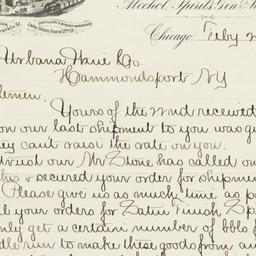 Alcohol, Spirits, Gin &
Chicago Feby 2
Urbana Wine Co.
Hammondsport NY
lemen.
Yours of the 22nd received
on our last shipment to you was gu
they cant raise the rate on you.
trust our Mr Stone has called on
& secured your order for shipmen
Please give us as much time as po
l your orders for Satin Finish Sp
only get a certain number of bbls f
dle him to make these goods from an